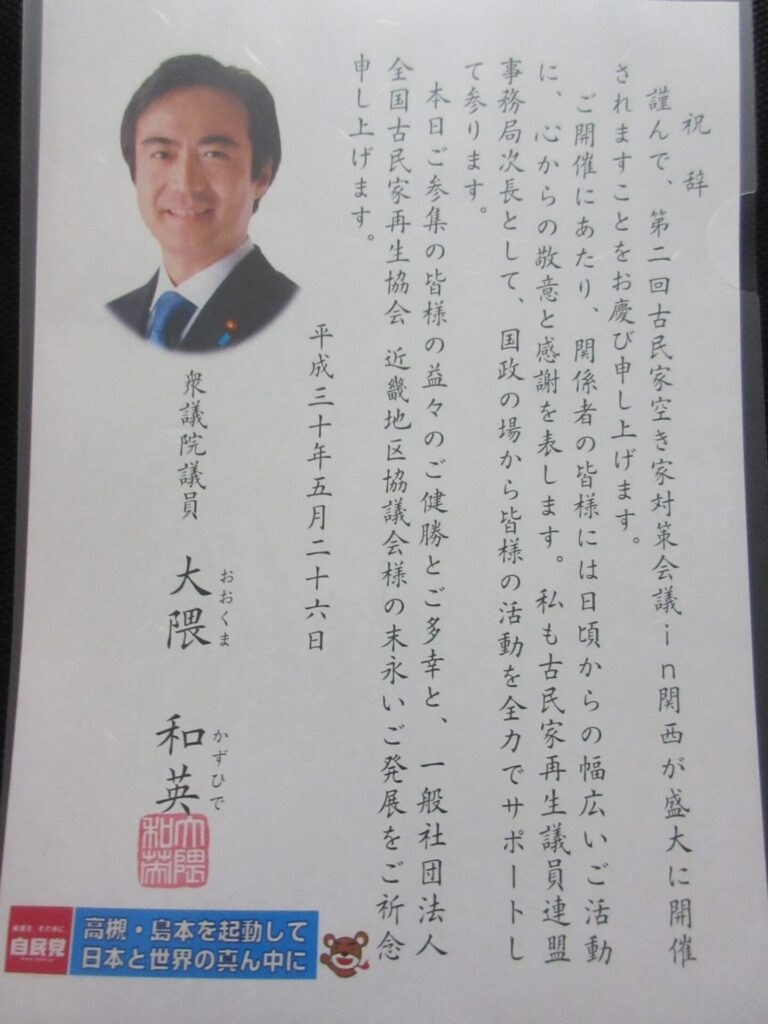 祝辞
謹んで、第二回古民家空き家対策会議in関西が盛大に開催
されますことをお慶び申し上げます。
ご開催にあたり、関係者の皆様には日頃からの幅広いご活動
に、心からの敬意と感謝を表します。私も古民家再生議員連盟
事務局次長として、国政の場から皆様の活動を全力でサポートし
て参ります。
本日ご参集の皆様の益々のご健勝とご多幸と、一般社団法人
全国古民家再生協会 近畿地区協議会様の末永いご発展をご祈念
申し上げます。
平成三十年五月二十六日
衆議院議員 大隈 和英
おおくま かずひで
大隈和英
自民党
高槻・島本を起動して
日本と世界の真ん中に